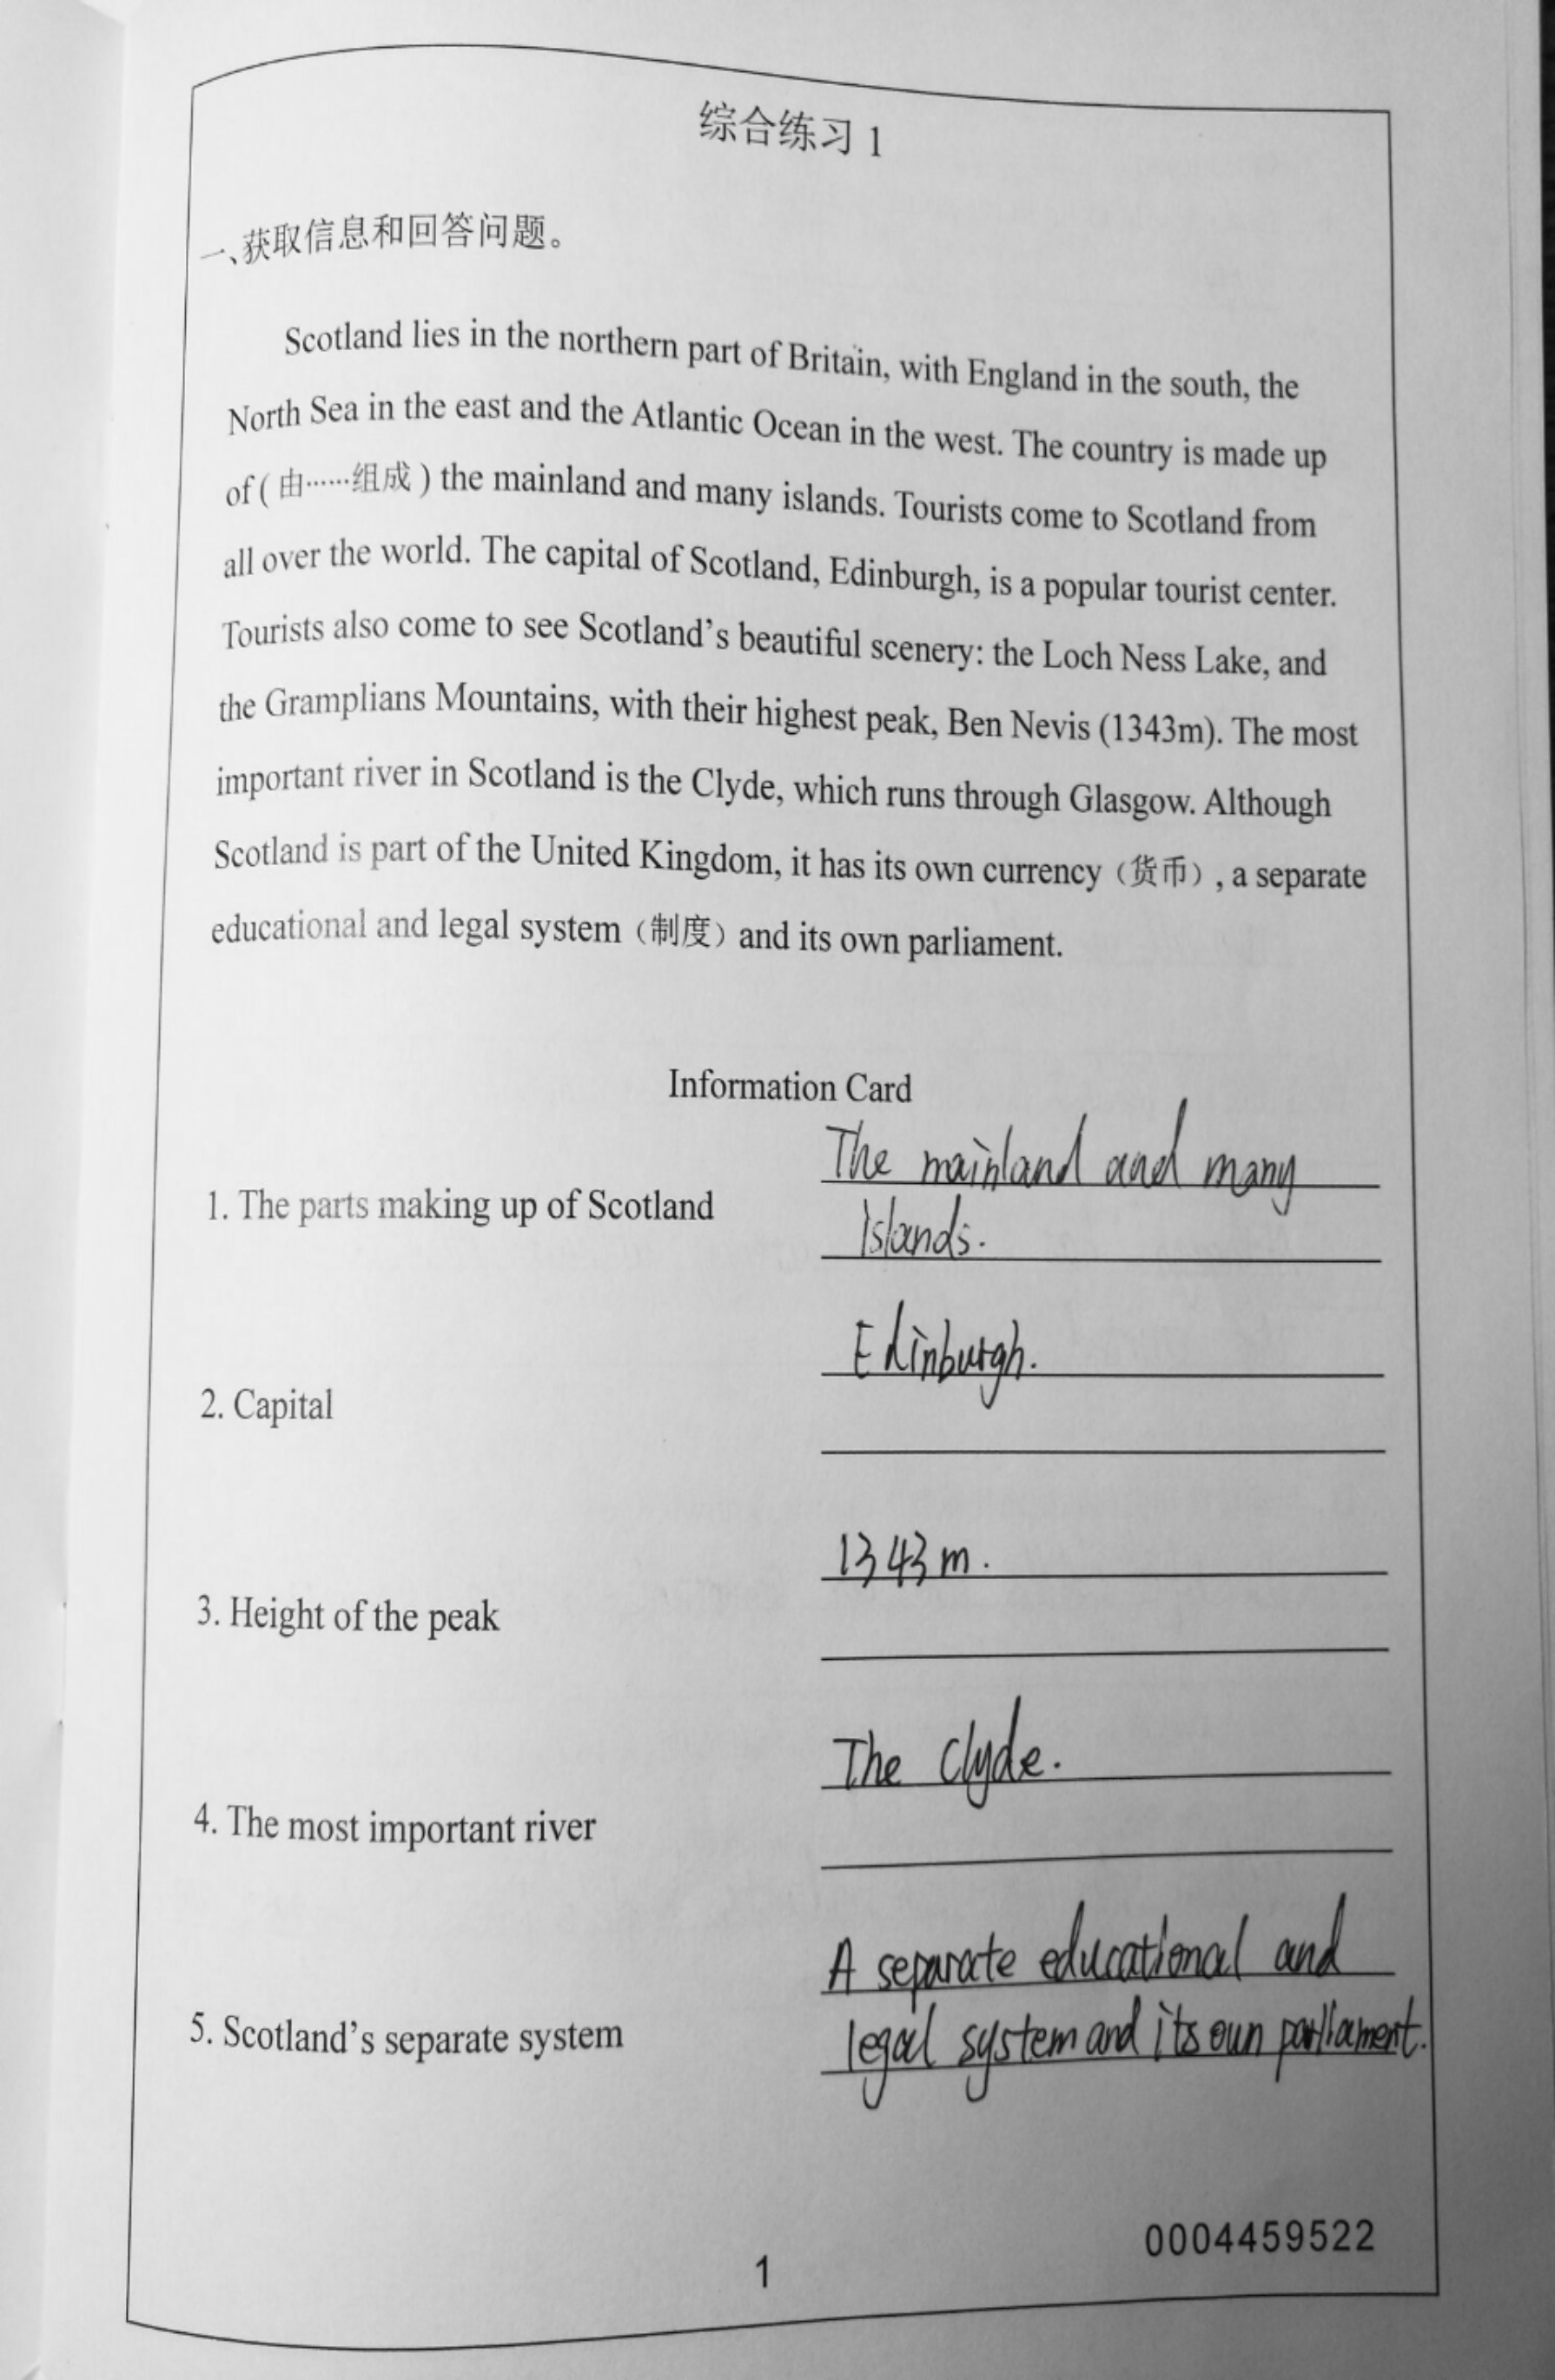 综合练习 1
一、获取信息和回答问题。
Scotland lies in the northern part of Britain, with England in the south, the
North Sea in the east and the Atlantic Ocean in the west. The country is made up
of ( 由……组成 ) the mainland and many islands. Tourists come to Scotland from
all over the world. The capital of Scotland, Edinburgh, is a popular tourist center.
Tourists also come to see Scotland's beautiful scenery: the Loch Ness Lake, and
the Gramplians Mountains, with their highest peak, Ben Nevis (1343m). The most
important river in Scotland is the Clyde, which runs through Glasgow. Although
Scotland is part of the United Kingdom, it has its own currency（货币）, a separate
educational and legal system（制度）and its own parliament.
Information Card
The mainland and many
1. The parts making up of Scotland
islands.
Edinburgh.
2. Capital
1343m.
3. Height of the peak
The Clyde.
4. The most important river
A separate educational and
5. Scotland's separate system
legal system and its own parliament.
0004459522
1